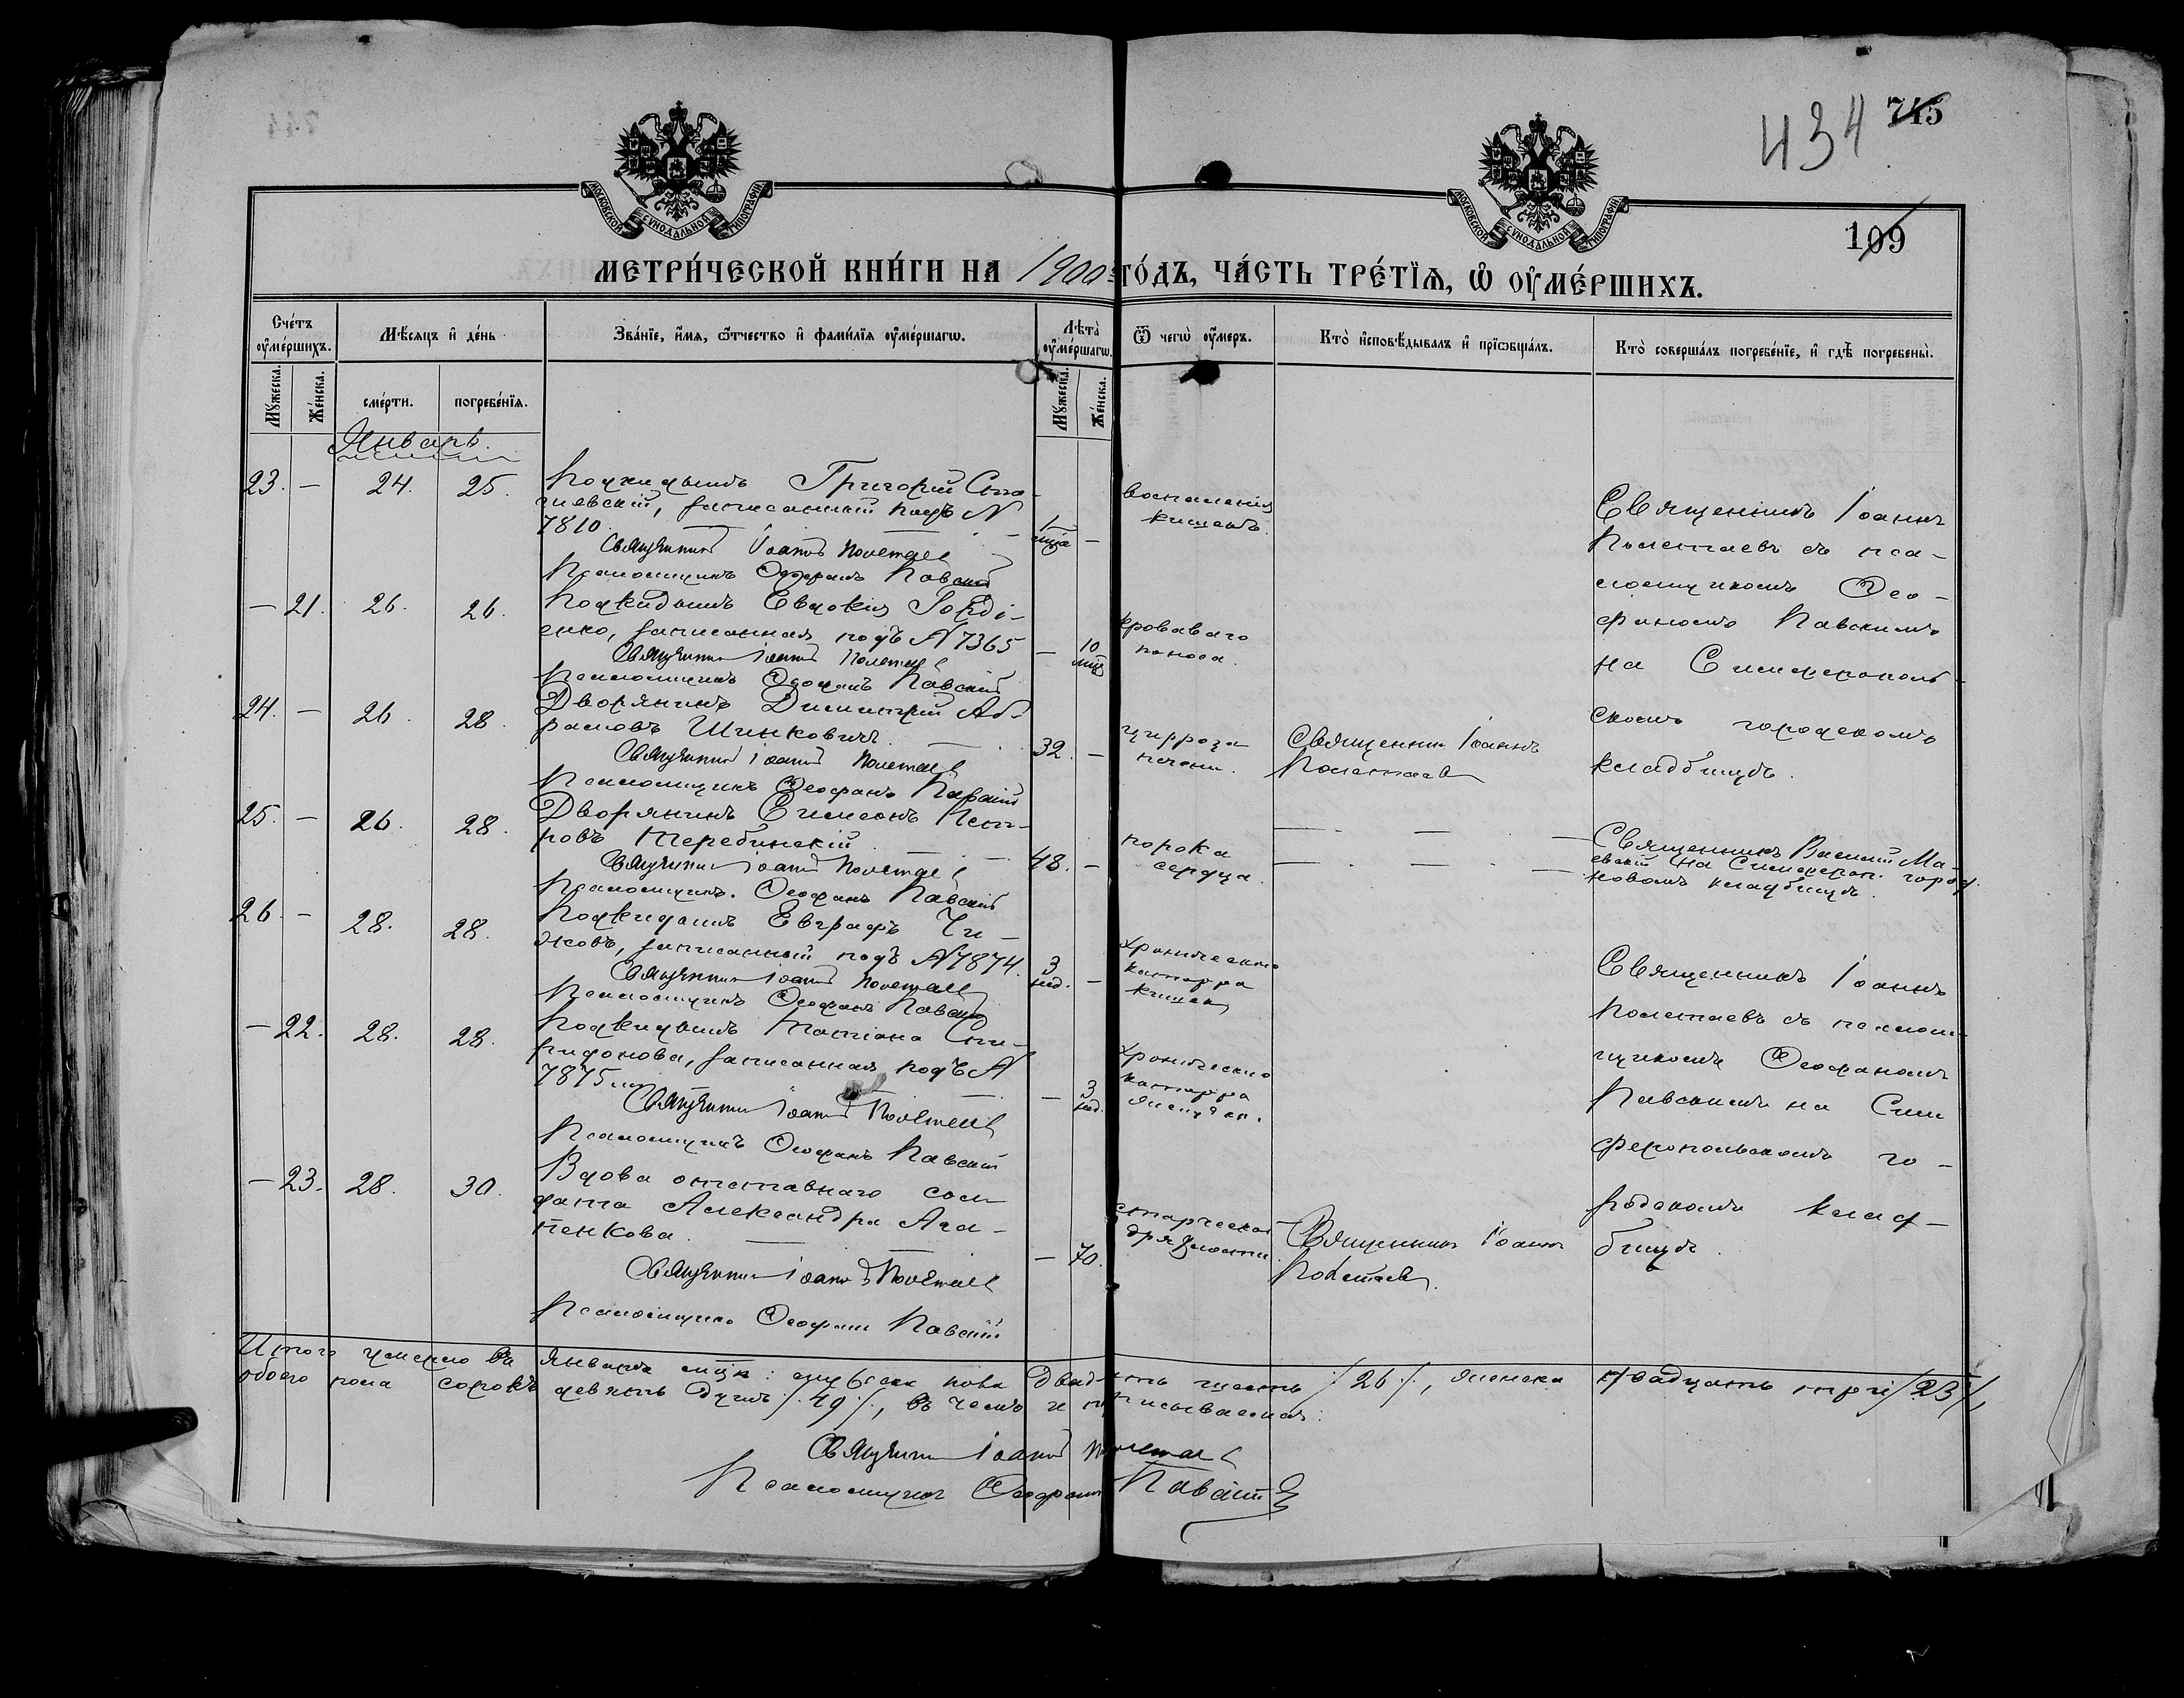 434 745
МОСКОВСКОЙ СѴНОДАЛЬНОЙ ТИПОГРАФІИ
МОСКОВСКОЙ СѴНОДАЛЬНОЙ ТИПОГРАФІИ
109
МЕТРИ́ЧЕСКОЙ КНИ́ГИ НА 1900й ГО́ДЪ, ЧА́СТЬ ТРЕ́ТЇѦ, Ѡ҆ ОУ҆МЕ́РШИХЪ.
Сче́тъ оу҆ме́ршихъ.
Мѣ́сяцъ и҆ де́нь
Зва́нїе, и҆́мя, ѻ҆́тчество и҆ фами́лїя оу҆ме́ршагѡ.
Лѣ́та оу҆ме́ршагѡ.
Ѿ чегѡ̀ оу҆́меръ.
Кто̀ и҆сповѣ́дывалъ и҆ прїѡбща́лъ.
Кто̀ соверша́лъ погребе́нїе, и҆ гдѣ̀ погребены̀.
Му́жеска. Же́нска. сме́рти. погребе́нїя. Му́жеска. Же́нска.
Январь.
23. — 24. 25.
Подкидышъ Григорій
записанный подъ N
7810.
Священникъ Іоаннъ Полетаевъ
Псаломщикъ Ѳеофанъ Павскій
1 мца —
воспаленія
кишекъ.
Священникъ Іоаннъ
Полетаевъ съ пса-
ломщикомъ Ѳео-
фаномъ Павскимъ
на Симферополь-
скомъ городскомъ
кладбищѣ.
— 21. 26. 26.
Подкидышъ Евдокія Горді-
енко, записанная подъ N 7365
Священникъ Іоаннъ Полетаевъ
Псаломщикъ Ѳеофанъ Павскій
— 10 мцъ
кроваваго
поноса.
24. — 26. 28.
Дворянинъ Димитрій Аб-
рамовъ Шинковичъ.
Священникъ Іоаннъ Полетаевъ
Псаломщикъ Ѳеофанъ Павскій
32. —
цирроза
печени.
Священникъ Іоаннъ
Полетаевъ
25. — 26. 28.
Дворянинъ Симеонъ Пет-
ровъ Теребинскій.
Священникъ Іоаннъ Полетаевъ
Псаломщикъ Ѳеофанъ Павскій
48. —
порока
сердца.
Священникъ Василій Ма-
евскій на Симфероп. город.
новомъ кладбищѣ.
26. — 28. 28.
Подкидышъ Евграфъ Чи-
жовъ, записанный подъ N 7874.
Священникъ Іоаннъ Полетаевъ
Псаломщикъ Ѳеофанъ Павскій
3 нед. —
хроническаго
катарра
кишекъ
Священникъ Іоаннъ
Полетаевъ съ псалом-
щикомъ Ѳеофаномъ
Павскимъ на Сим
феропольскомъ го-
родскомъ клад-
бищѣ.
— 22. 28. 28.
Подкидышъ Татіана Спи-
ридонова, записанная подъ N
7875
Священникъ Іоаннъ Полетаевъ
Псаломщикъ Ѳеофанъ Павскій
— 3 нед.
хроническаго
катарра
желудка.
— 23. 28. 30.
Вдова отставного сол-
дата Александра Ага-
пенкова.
Священникъ Іоаннъ Полетаевъ
Псаломщикъ Ѳеофанъ Павскій
— 70.
старческой
дряхлости.
Священникъ Іоаннъ
Полетаевъ.
Итого умерло въ январѣ мцѣ: мужеска пола двадцать шесть /26/, женска двадцать три /23/,
обоего пола сорокъ девять душъ /49/, въ чемъ и подписываемся:
Священникъ Іоаннъ Полетаевъ
Псаломщикъ Ѳеофанъ Павскій